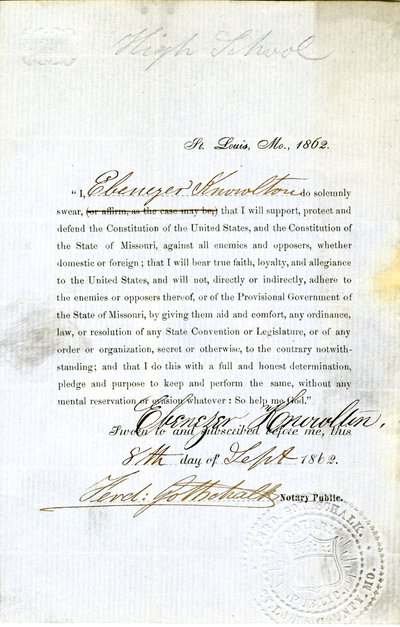 High School
St. Louis, Mo., 1862.
"I, Ebenezer Knowlton do solemnly
swear, (or affirm, as the case may be,) that I will support, protect and
defend the Constitution of the United States, and the Constitution of
the State of Missouri, against all enemies and opposers, whether
domestic or foreign; that I will bear true faith, loyalty, and allegiance
to the United States, and will not, directly or indirectly, adhere to
the enemies or opposers thereof, or of the Provisional Government of
the State of Missouri, by giving them aid and comfort, any ordinance,
law, or resolution of any State Convention or Legislature, or of any
order or organization, secret or otherwise, to the contrary notwith-
standing; and that I do this with a full and honest determination,
pledge and purpose to keep and perform the same, without any
mental reservation or evasion whatever: So help me God."
Ebenezer Knowlton.
Sworn to and subscribed before me, this
8th day of Sept 1862.
Ferd: Gottschalk Notary Public.
GOTTSCHALK.
COUNTY, MO.